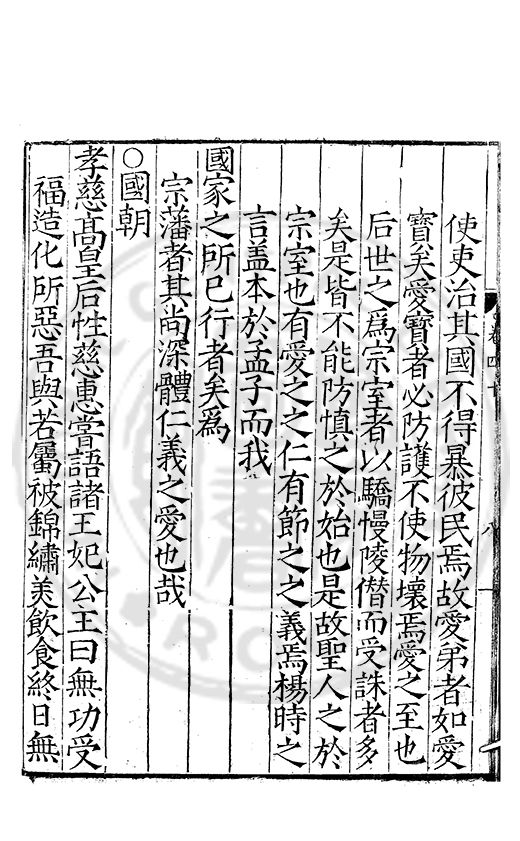 使吏治其國不得暴彼民焉故愛弟者如愛
寳矣愛寳者必防護不使物壞焉愛之至也
后世之爲宗室者以驕慢陵僣而受誅者多
矣是皆不能防慎之於始也是故聖人之於
宗室也有愛之之仁有節之之義焉楊時之
言盖本於孟子而我
國家之所已行者矣爲
宗藩者其尚深體仁義之愛也哉
○國朝
孝慈高皇后性慈惠甞語諸王妃公主曰無功受
福造化所惡吾與若屬被錦繡美飲食終日無
卷四十
八